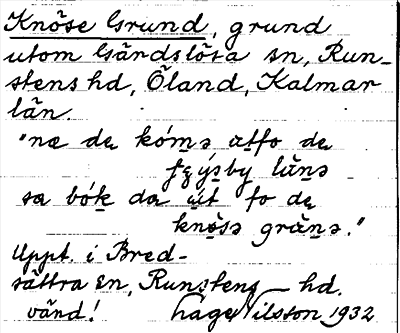 Knöse Grund, grund
utom Gärdslösa sn, Run-
stens hd, Öland, Kalmar
län.
"næ dɶ kómə
sa bók da út fo dɶ
knösə gränə."
Uppt. i Bred-
sättra sn, Runstens hd.
vänd! Hage Nilsson 1932